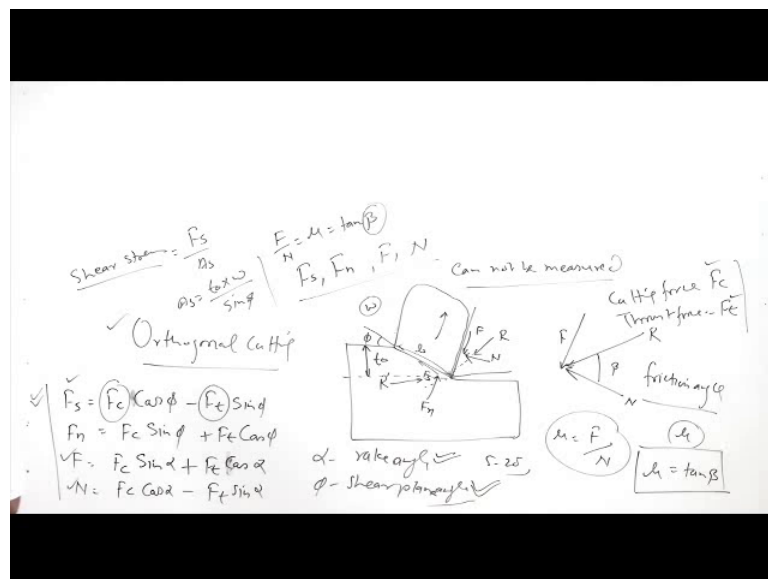 Shear stress = Fs / As
As = to x w / sinφ
F / N = μ = tan β
Fs, Fn, F, N - Can not be measured
Orthogonal Cutting
Fs = Fc Cosφ - Ft Sinφ
Fn = Fc Sinφ + Ft Cosφ
F = Fc Sinα + Ft Cosα
N = Fc Cosα - Ft Sinα
w
φ
to
ls
F
R
N
R'
Fs
Fn
α - rake angle 5-25
φ - shear plane angle
Cutting force Fc
Thrust force - Ft
F
R
β
friction angle
N
μ = F / N
μ
μ = tan β